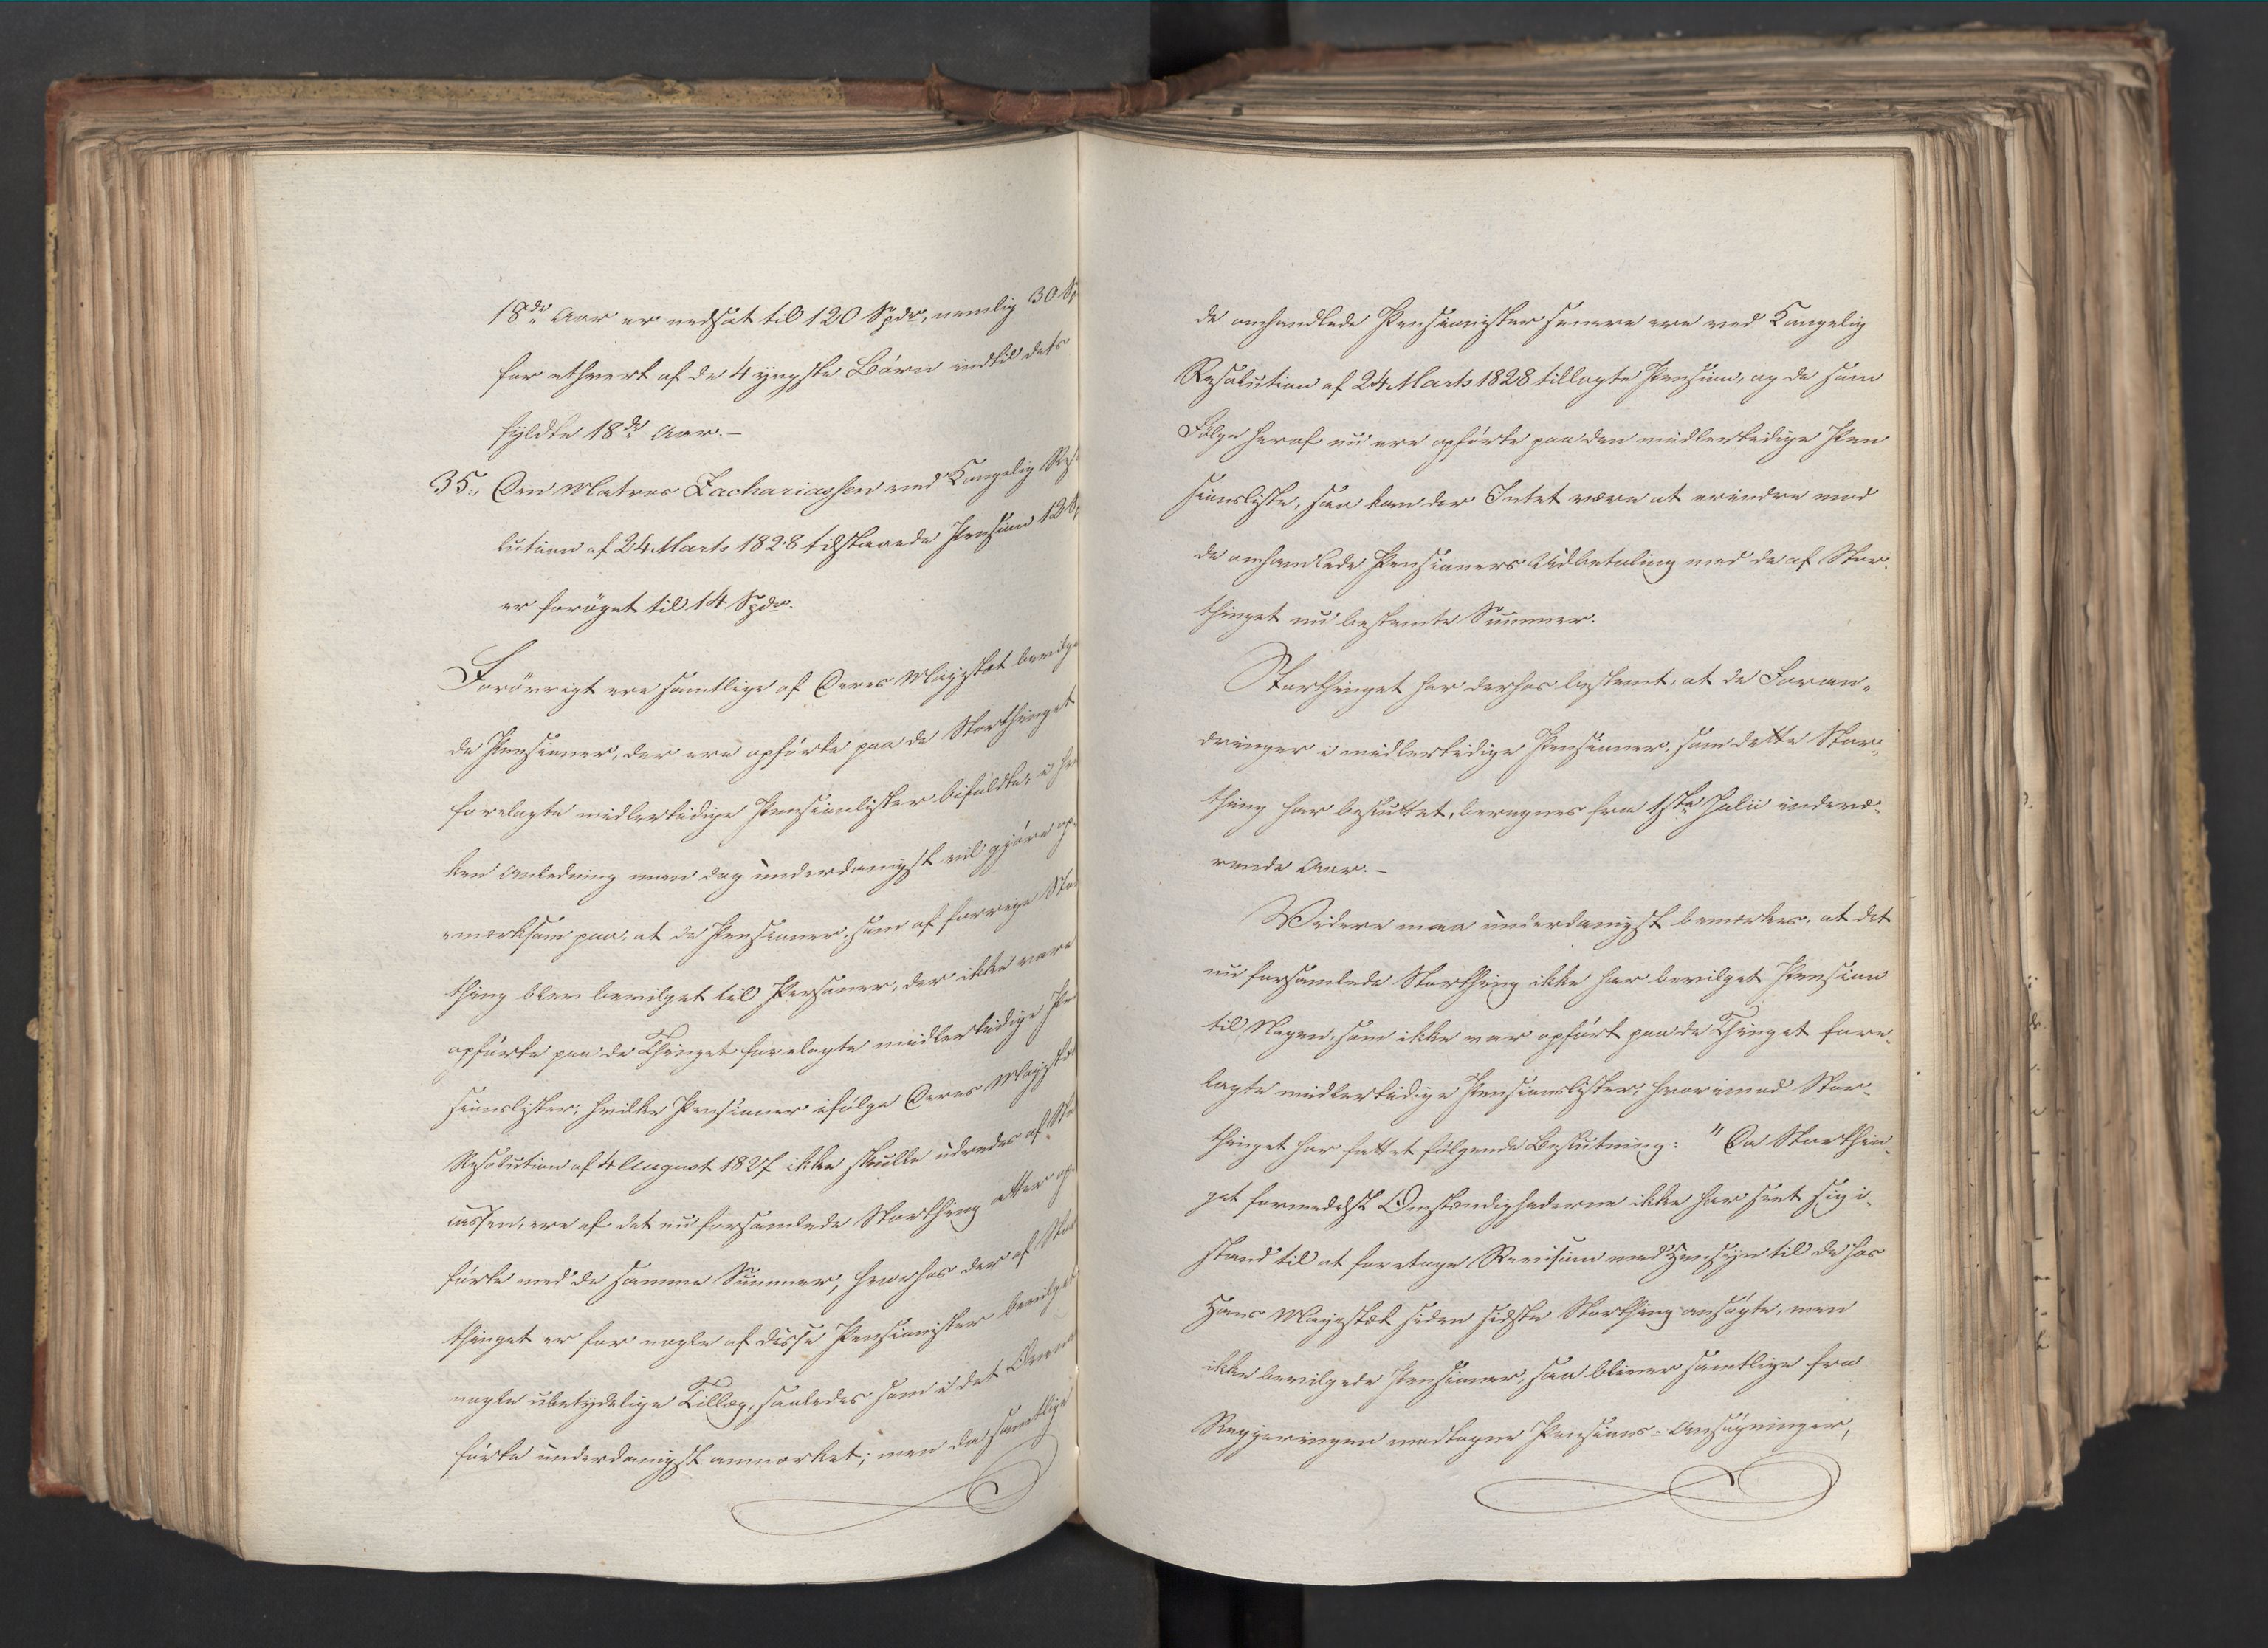 18de Aar er nedsat til 120 Spdr, nemlig 30 Sp
for ethvert af de 4 yngste Börn indtil dets
fyldte 18de Aar.-
35., Den Matros Zachariassen ved Kongelig Res
lution af 24 Marts 1828 tilstaaede Pension 12 Sp
er foröget til 14 Spdr.
Forövrigt ere samtlige af Deres Majestæt bevilge
de Pensioner, der ere opförte paa de Storthinget
forelagte midlertidige Pensionslister bifaldte, i hvil
ken Anledning man dog underdanigst vil gjöre op
mærksom paa, at de Pensioner, som af forrige Stor
thing blev bevilget til Personer, der ikke vare
opförte paa de Thinget forelagte midlertidige Pen
sionslister, hvilke Pensioner ifölge Deres Majestæts
Resolution af 4 August 1827 ikke skulle udredes af Stats
cassen, ere af det nu forsamlede Storthing atter op
förte med de samme Summer, hvorhos der af Stor
thinget er for nogle af disse Pensionister bevilget
nogle ubetydelige Tillæg, saaledes som i det Oven
förte underdanigst anmærket; men da samtlige
de omhandlede Pensionister senere ere ved Kongelig
Resolution af 24 Marts 1828 tillagte Pension, og de som
Fölge heraf nu ere opförte paa den midlertidige Pen
sionsliste, saa kan der Intet være at erindre mod
de omhandlede Pensioners Udbetaling med de af Stor-
thinget nu bestemte Summer.
Storthinget har derhos bestemt, at de Foran-
dringer i midlertidige Pensioner, som dette Stor-
thing har besluttet, beregnes fra 1ste Julii indevæ-
rende Aar.-
Videre maa underdanigst bemærkes, at det
nu forsamlede Storthing ikke har bevilget Pension
til Nogen, som ikke var opfört paa de Thinget fore-
lagte midlertidige Pensionslister, hvorimod Stor-
thinget har fattet fölgende Beslutning: "Da Storthin-
get formedelst Omstændighederne ikke har seet sig i-
stand til at foretage Revision med Hensyn til de hos
Hans Majestæt siden sidste Storthing ansögte, men
ikke bevilgede Pensioner, saa bliver samtlige fra
Regjeringen modtagne Pensions-Ansögninger,